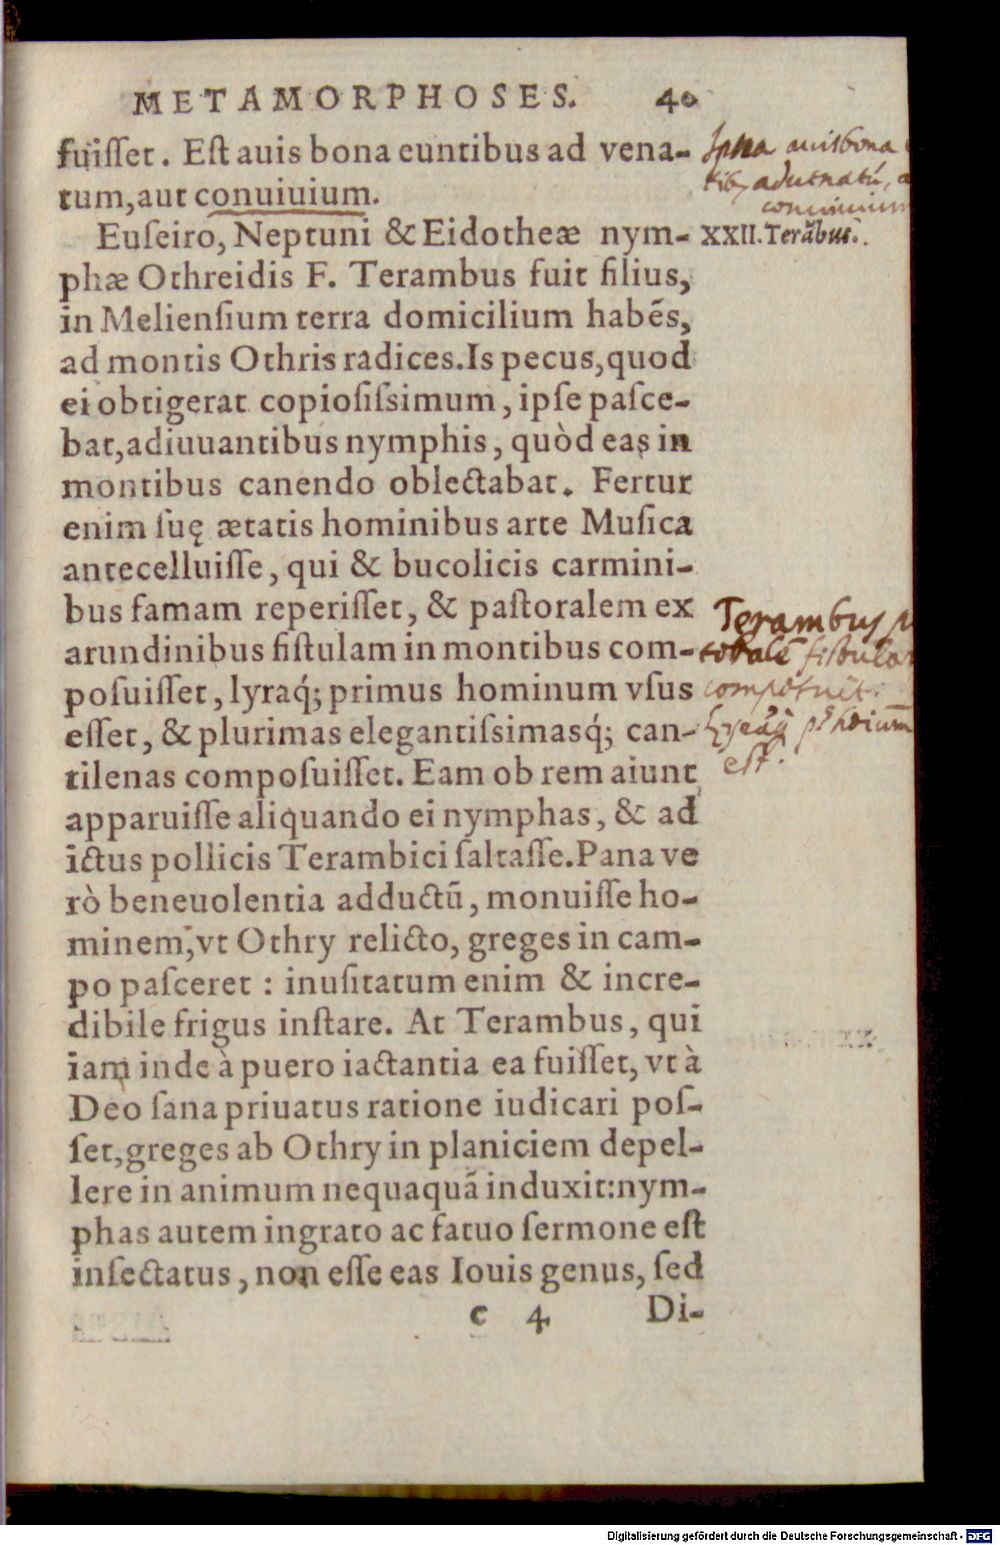 METAMORPHOSES. 40
fuiſſet. Eſt auis bona euntibus ad vena-
tum, aut conuiuium.
Euſeiro, Neptuni & Eidotheæ nym-
XXII. Terãbus.
phæ Othreidis F. Terambus fuit filius,
in Melienſium terra domicilium habẽs,
ad montis Othris radices. Is pecus, quod
ei obtigerat copioſiſsimum, ipſe paſce-
bat, adiuuantibus nymphis, quòd eas in
montibus canendo oblectabat. Fertur
enim ſuę ætatis hominibus arte Muſica
antecelluiſſe, qui & bucolicis carmini-
bus famam reperiſſet, & paſtoralem ex
arundinibus fiſtulam in montibus com-
poſuiſſet, lyraq́; primus hominum vſus
eſſet, & plurimas elegantiſsimasq́; can-
tilenas compoſuiſſet. Eam ob rem aiunt
apparuiſſe aliquando ei nymphas, & ad
ictus pollicis Terambici ſaltaſſe. Pana ve
rò beneuolentia adductũ, monuiſſe ho-
minem, vt Othry relicto, greges in cam-
po paſceret : inuſitatum enim & incre-
dibile frigus inſtare. At Terambus, qui
iam inde à puero iactantia ea fuiſſet, vt à
Deo ſana priuatus ratione iudicari poſ-
ſet, greges ab Othry in planiciem depel-
lere in animum nequaquã induxit: nym-
phas autem ingrato ac fatuo ſermone eſt
inſectatus, non eſſe eas Iouis genus, ſed
c 4 Di-
auis bona
conuiuium
Terambus
fistulam
composuit.
est.
Digitalisierung gefördert durch die Deutsche Forschungsgemeinschaft - DFG